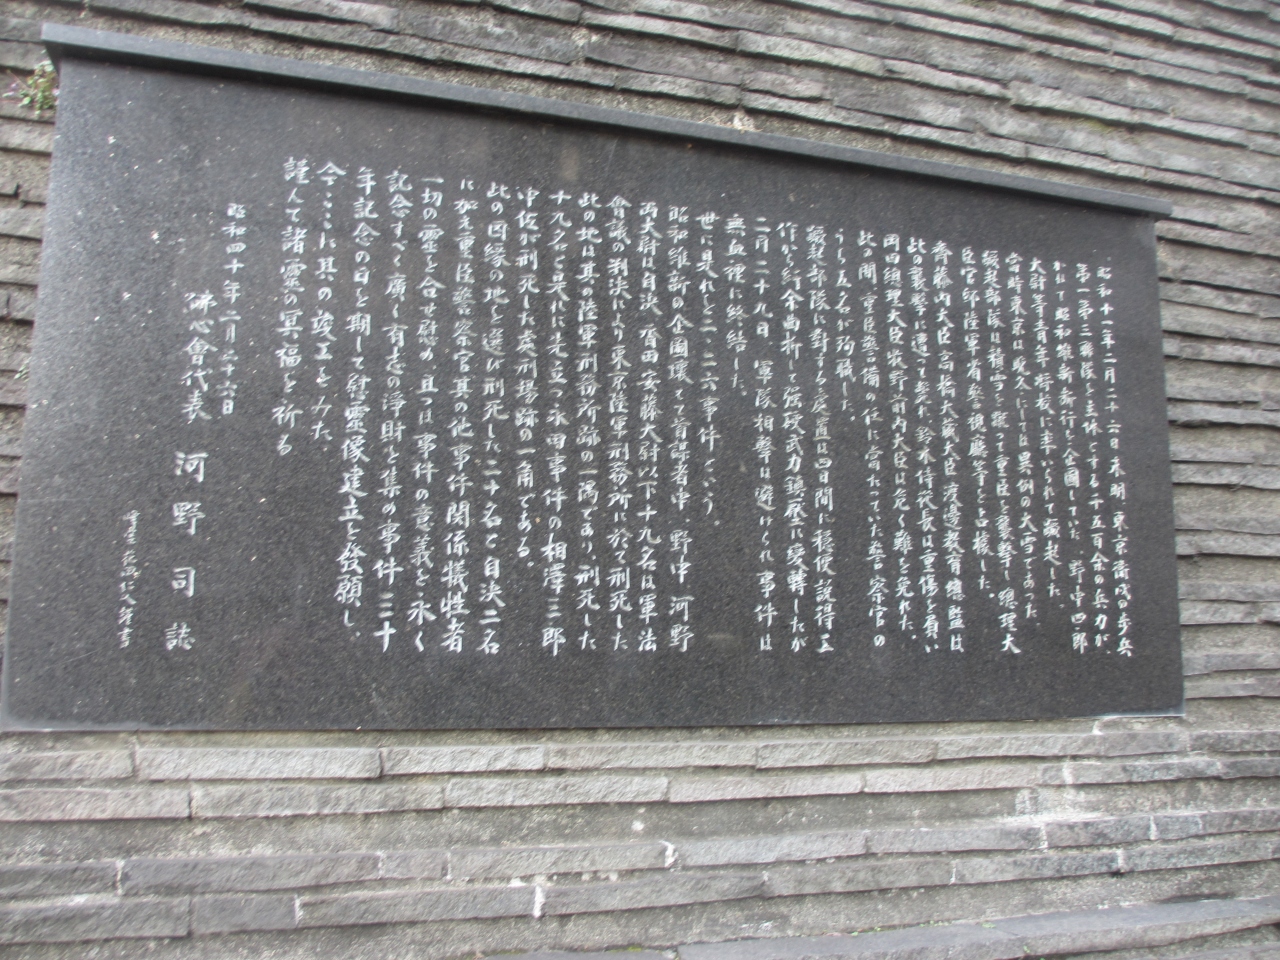 昭和十一年二月二十六日未明、東京衛戍の歩兵
第一第三聯隊を主体とする千五百余の兵力が、
かねて昭和維新断行を企図していた、野中四郎
大尉等青年将校に率いられて蹶起した。
当時東京は晩冬にしては異例の大雪であった。
蹶起部隊は積雪を蹴って重臣を襲撃し総理大
臣官邸陸軍省警視庁等を占拠した。
齊藤内大臣 高橋大蔵大臣 渡邊教育総監は
此の襲撃に遭って斃れ、鈴木侍従長は重傷を負い
岡田総理大臣 牧野前内大臣は危く難を免れた。
此の間、重臣警備の任に当たっていた警察官の
うち五名が殉職した。
蹶起部隊に対する処置は四日間に穏便説得工
作から紆余曲折して強硬武力鎮圧に変転したが
二月二十九日、軍隊相撃は避けられ事件は
無血裡に終結した。
世に是れを二・二六事件という。
昭和維新の企図壊えて首謀者中、野中 河野
両大尉は自決、香田、安藤大尉以下十九名は軍法
會議の判決により東京陸軍刑務所に於て刑死した
此の地は其の陸軍刑務所跡の一隅であり、刑死した
十九名と是れに先立つ永田事件の相澤三郎
中佐が刑死した処刑場跡の一角である。
此の因縁の地を選び刑死した二十名と自決二名
に加え重臣警察官其の他事件関係犠牲者
一切の霊を合せ慰め、且つは事件の意義を永く
記念すべく廣く有志の浄財を集め事件三十
年記念の日を期して慰霊像建立を発願し、
今ここに其の竣工をみた。
謹んで諸霊の冥福を祈る
昭和四十年二月二十六日
佛心會代表 河野司 誌